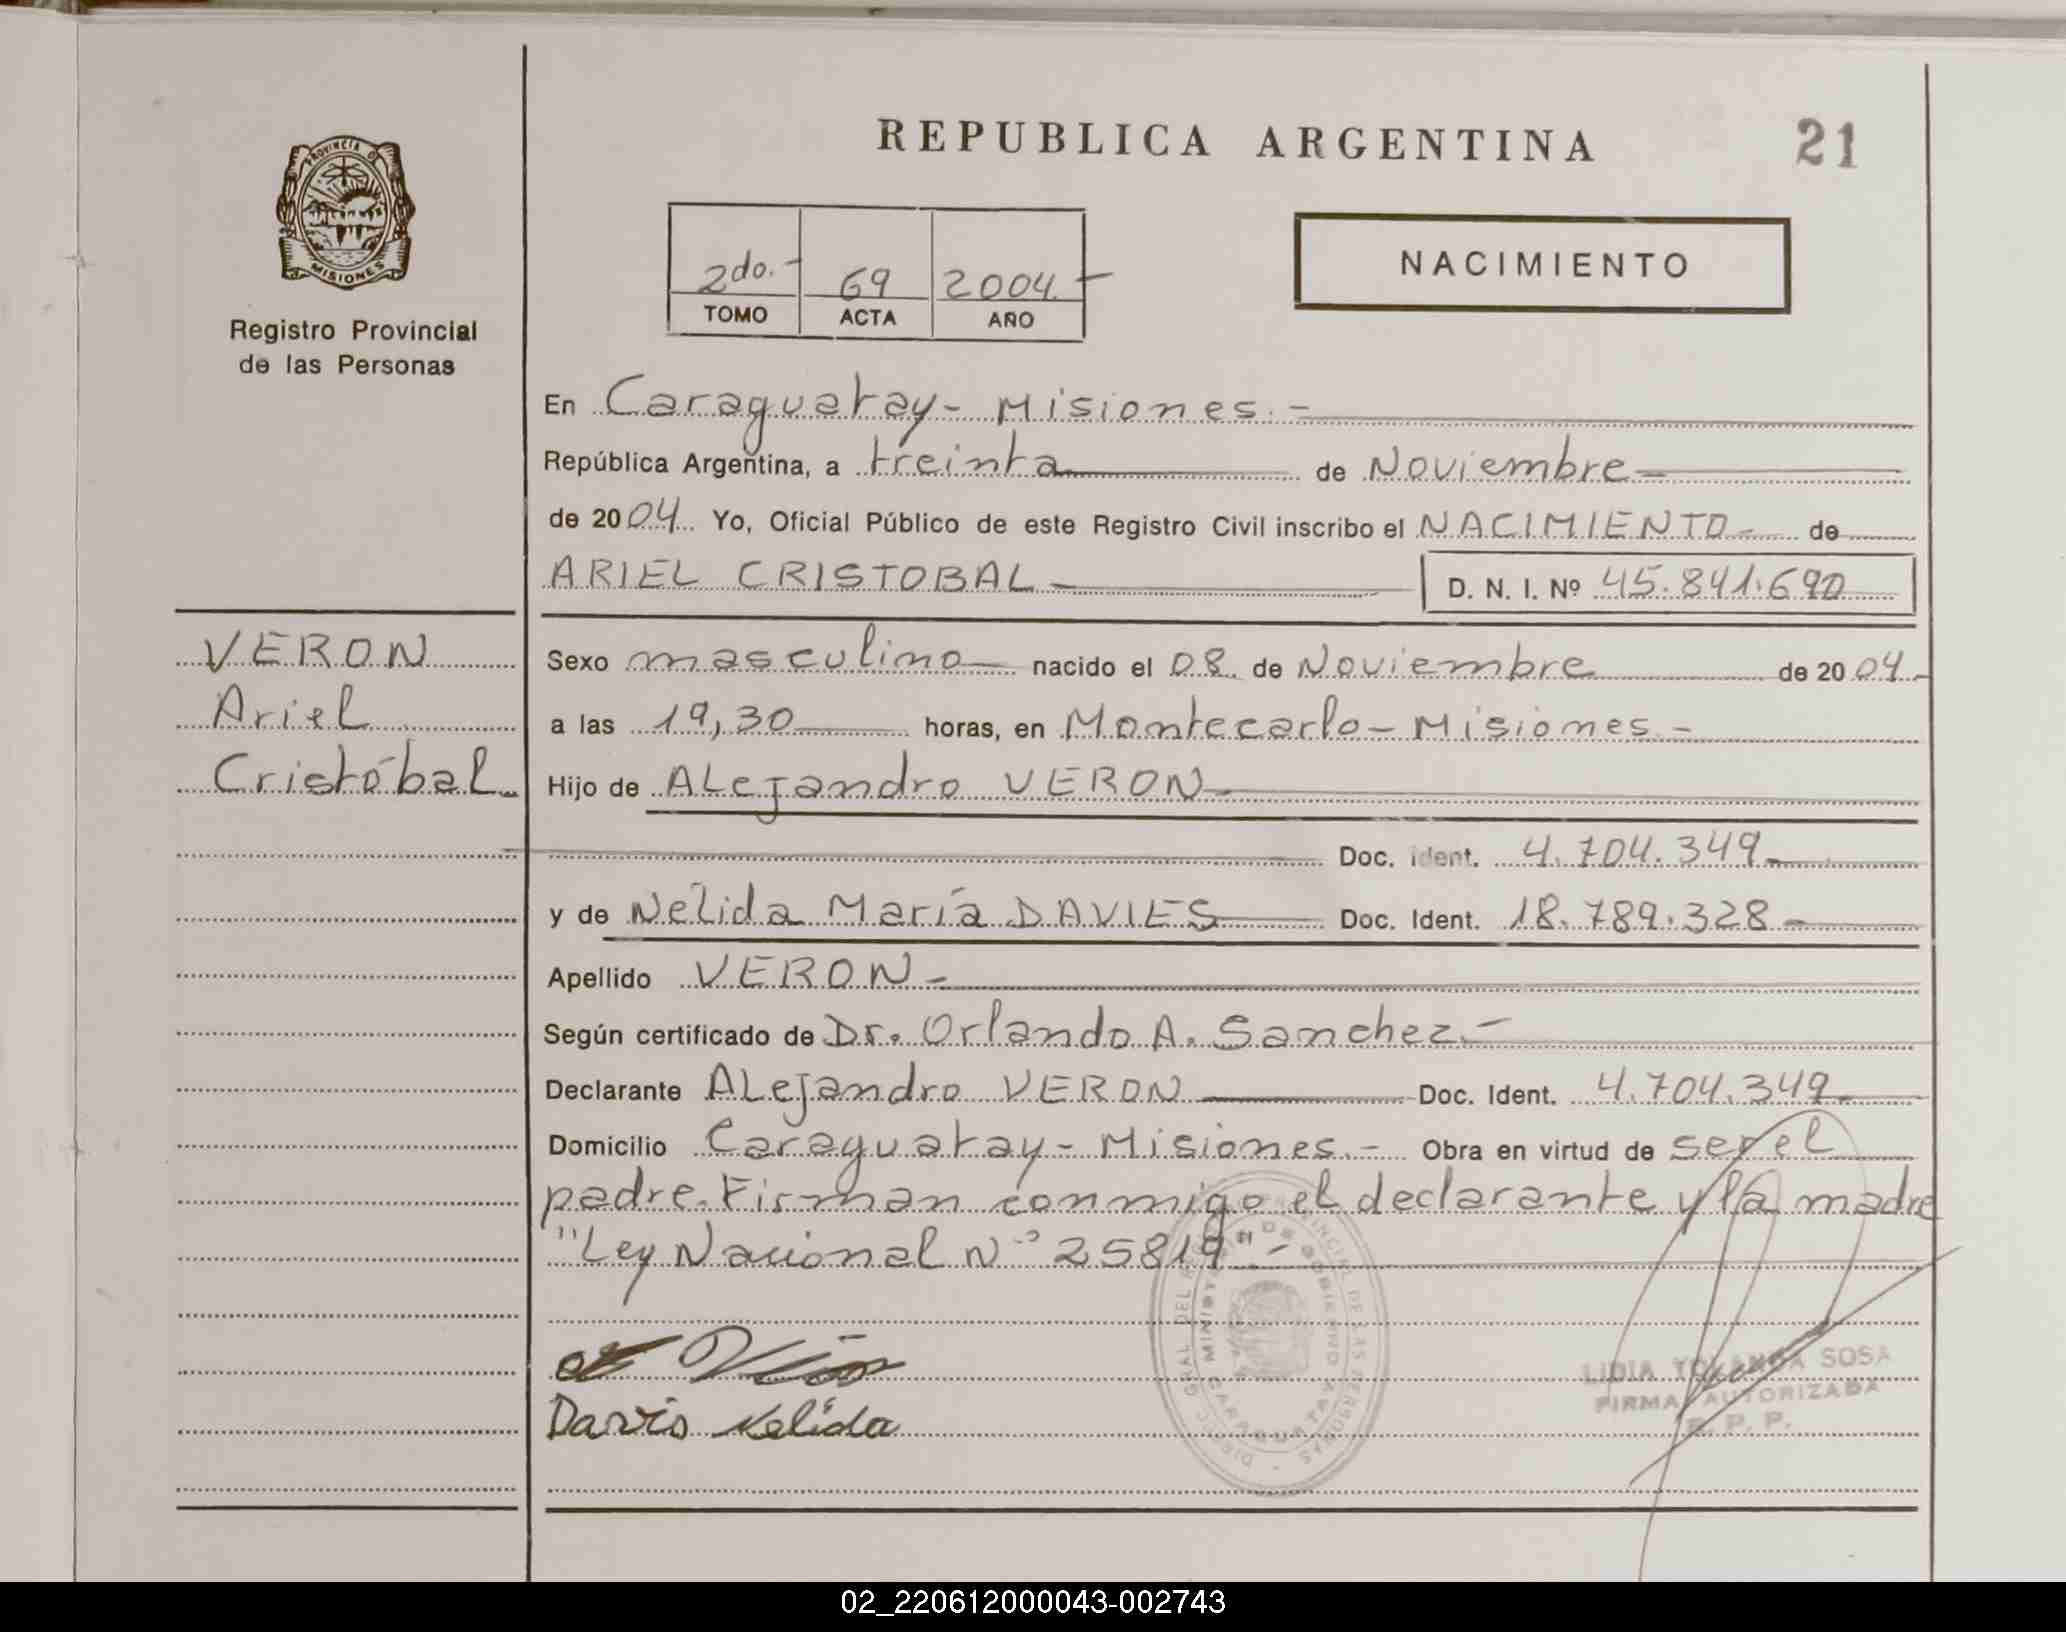 REPUBLICA ARGENTINA
21
PROVINCIA DE
MISIONES
Registro Provincial
de las Personas
2do.- 69 2004.-
TOMO ACTA AÑO
NACIMIENTO
En Caraguatay - Misiones.-
República Argentina, a treinta de Noviembre
de 2004 Yo, Oficial Público de este Registro Civil inscribo el NACIMIENTO de
ARIEL CRISTOBAL D. N. I. Nº 45.841.690
VERON
Ariel
Cristóbal
Sexo masculino nacido el 08 de Noviembre de 2004
a las 19,30 horas, en Montecarlo - Misiones.-
Hijo de ALejandro VERON
Doc. Ident. 4.704.349
y de Nélida María DAVIES Doc. Ident. 18.789.328
Apellido VERON
Según certificado de Dr. Orlando A. Sanchez.-
Declarante ALejandro VERON Doc. Ident. 4.704.349
Domicilio Caraguatay - Misiones.- Obra en virtud de ser el
padre. Firman conmigo el declarante y la madre
"Ley Nacional N° 25819" -
Davis Nelida
LIDIA YOLANDA SOSA
FIRMA AUTORIZADA
R. P. P.
02_220612000043-002743